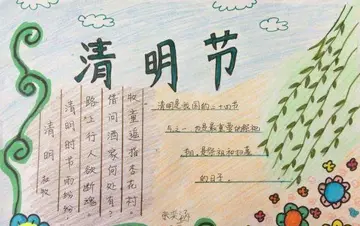 清明节
清明 杜牧
清明时节雨纷纷，
路上行人欲断魂。
借问酒家何处有？
牧童遥指杏花村。
清明是我国的二十四节
气之一，也是最重要的祭祀
日，是祭祖和扫墓
的日子。